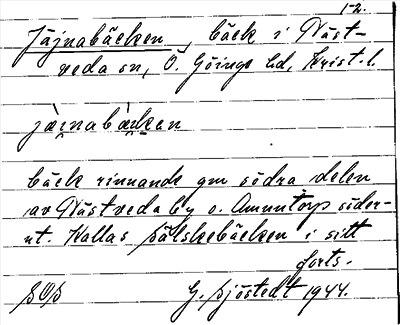 1-2.
Jäjnabäcken, bäck i Näst-
veda sn, Ö. Göinge hd, Krist. l.
jæ̀i̯nabæ̀kken
bäck rinnande gm södra delen
av Nästveda by o. Ammtorp söder-
ut. Kallas Sälskebäcken i sitt
forts.
SOS G. Sjöstedt 1944.